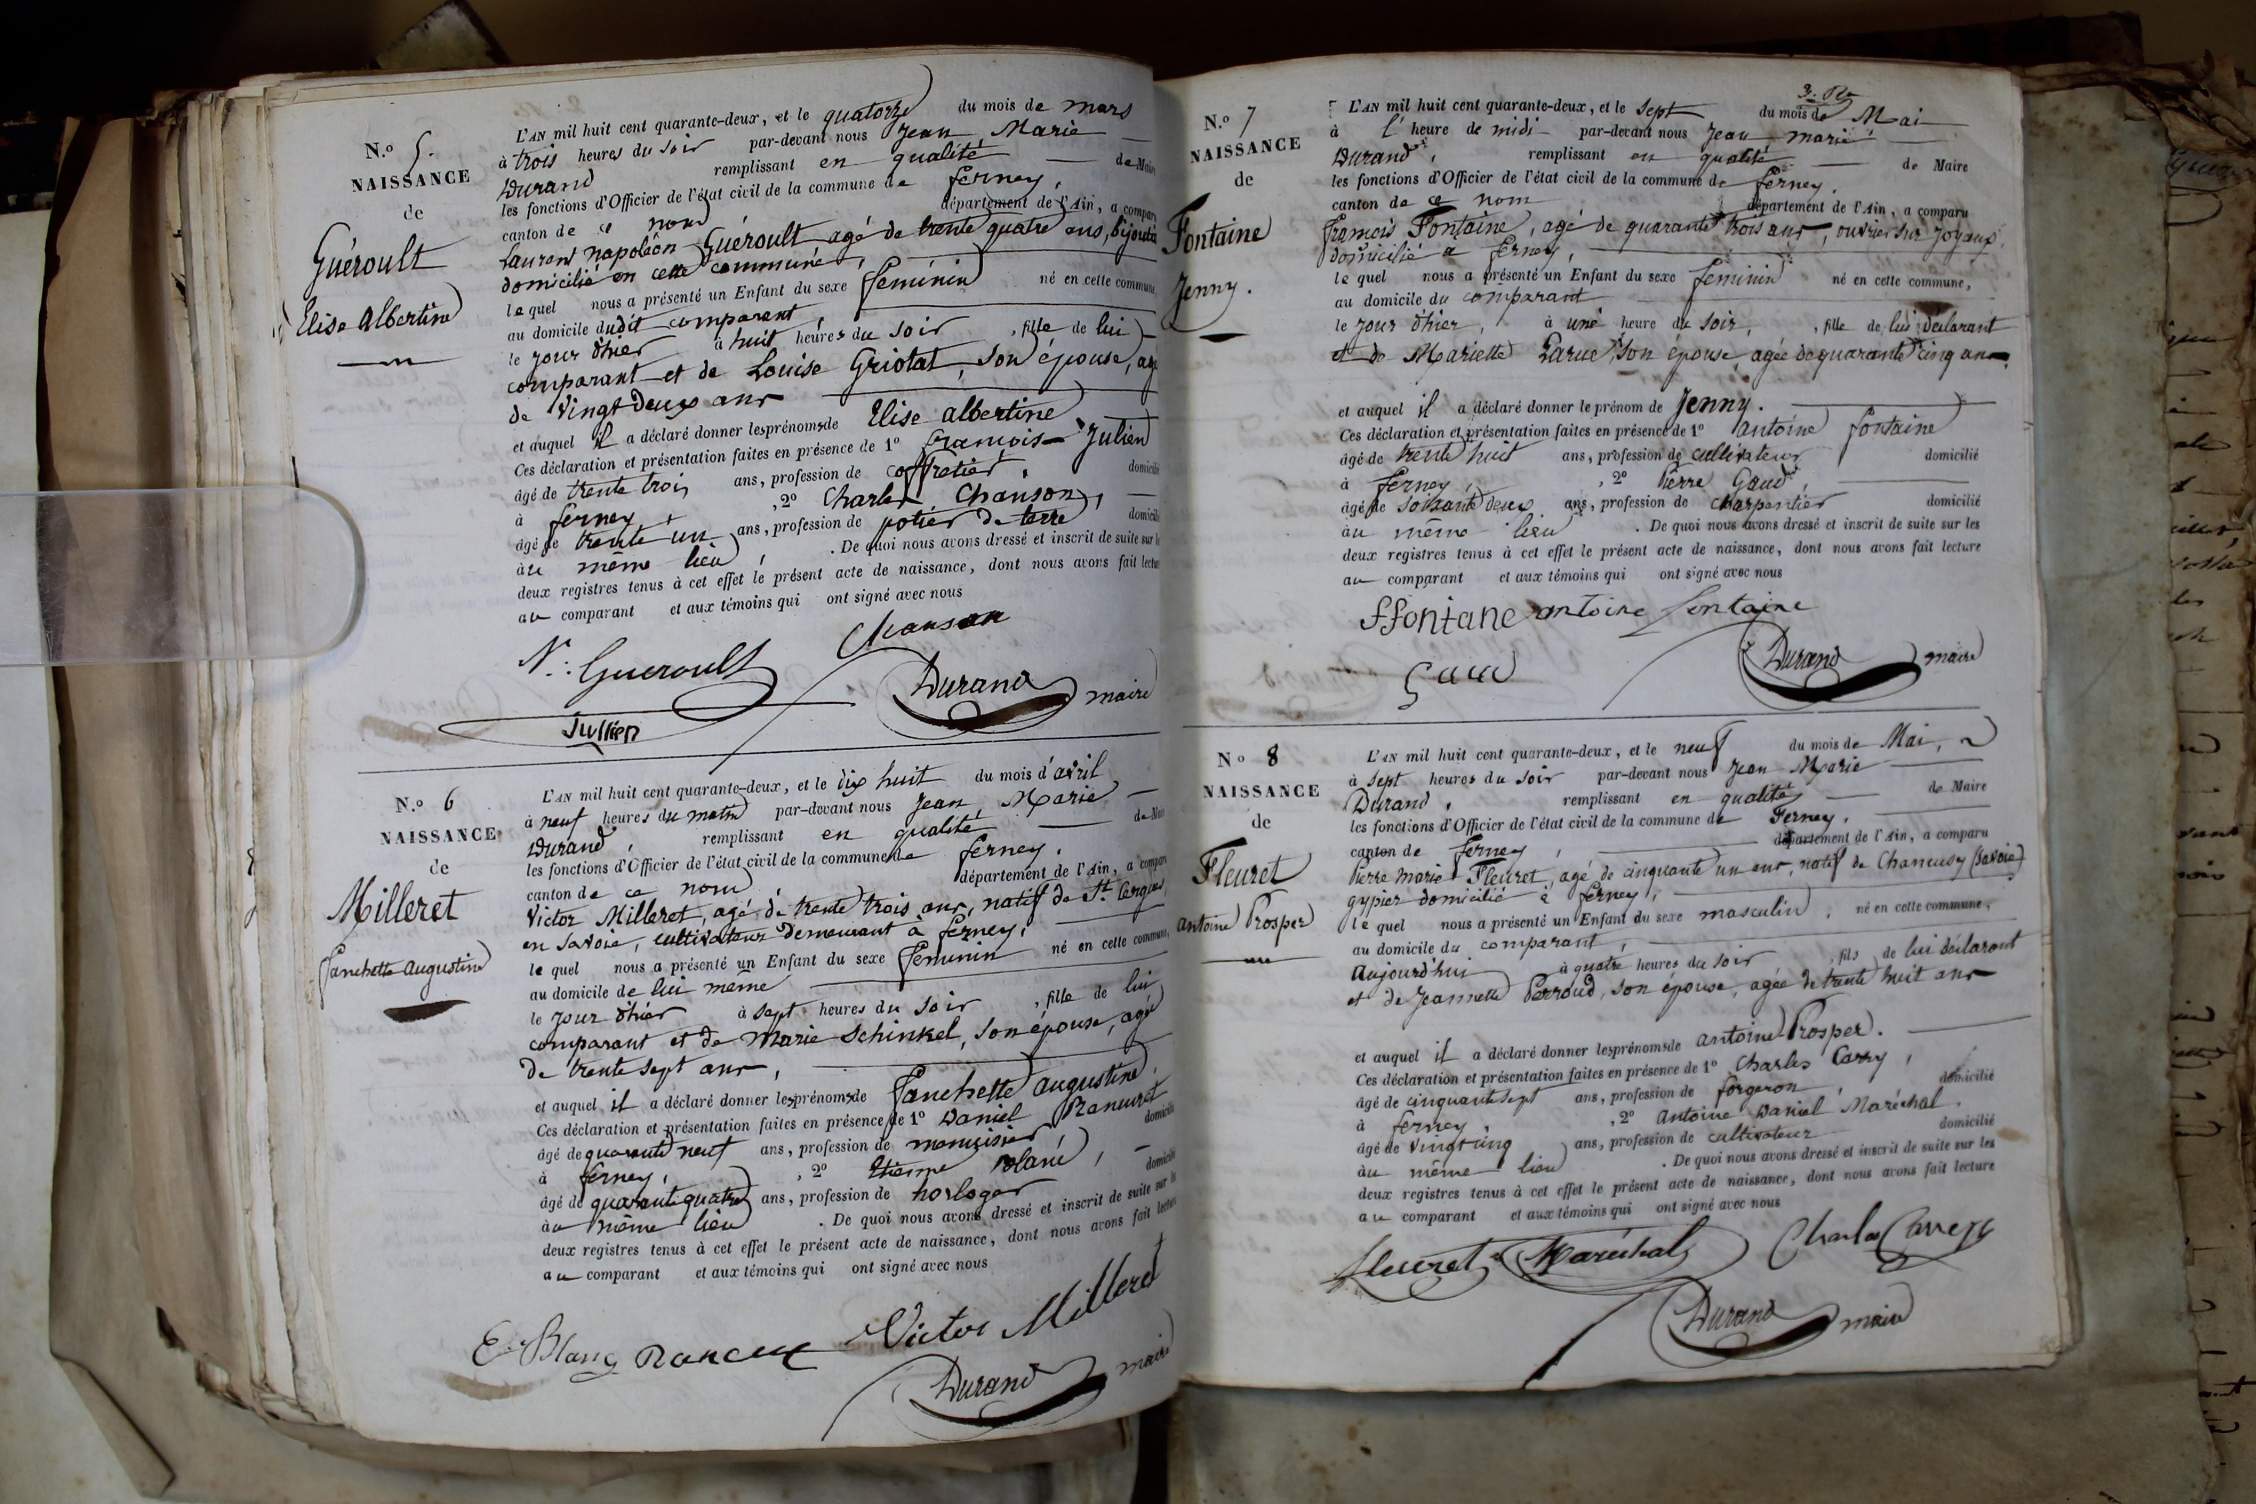 N.o 5.
NAISSANCE
de
Guéroult
Elise Albertine
L'AN mil huit cent quarante-deux, et le quatorze du mois de mars
à trois heures du soir par-devant nous Jean Marie
Durand remplissant en qualité de Maire
les fonctions d'Officier de l'état civil de la commune de ferney,
canton de ce nom département de l'Ain, a comparu
Laurent napoléon Guéroult agé de trente quatre ans, bijoutier
domicilié en cette commune,
le quel nous a présenté un Enfant du sexe féminin né en cette commune,
au domicile dudit comparant,
le jour d'hier à huit heures du soir, fille de lui
comparant et de Louise Griotat, son épouse, agé
de vingt deux ans
et auquel il a déclaré donner les prénoms de Elise albertine
Ces déclaration et présentation faites en présence de 1o françois Julien
âgé de trente trois ans, profession de coffretier, domicilié
à ferney, 2o Charles Chanson,
âgé de trente un ans, profession de potier de terre domicilié
au même lieu, . De quoi nous avons dressé et inscrit de suite sur les
deux registres tenus à cet effet le présent acte de naissance, dont nous avons fait lecture
au comparant et aux témoins qui ont signé avec nous
Chanson
N.: Gueroult
Durand maire
Jullien
N.o 6
NAISSANCE
de
Milleret
fanchette augustine
L'AN mil huit cent quarante-deux, et le dix huit du mois d'avril
à neuf heures du matin par-devant nous Jean Marie
Durand, remplissant en qualité de Maire
les fonctions d'Officier de l'état civil de la commune de ferney.
canton de ce nom département de l'Ain, a comparu
Victor Milleret, agé de trente trois ans, natif de St. Cergues
en Savoie, cultivateur demeurant à ferney,
le quel nous a présenté un Enfant du sexe féminin né en cette commune,
au domicile de lui même
le jour d'hier à sept heures du soir, fille de lui
comparant et de Marie Schinkel, son épouse, agé
de trente sept ans,
et auquel il a déclaré donner les prénoms de fanchette augustine.
Ces déclaration et présentation faites en présence de 1o Daniel Rancuret
âgé de quarante neuf ans, profession de menuisier domicilié
à ferney, 2o Etienne Blanc,
âgé de quarante quatre ans, profession de horloger domicilié
au même lieu . De quoi nous avons dressé et inscrit de suite sur les
deux registres tenus à cet effet le présent acte de naissance, dont nous avons fait lecture
au comparant et aux témoins qui ont signé avec nous
E. Blanc Victor Milleret
Durand maire
N.o 7
NAISSANCE
de
Fontaine
Jenny.
L'AN mil huit cent quarante-deux, et le sept du mois de Mai
à l'heure de midi par-devant nous Jean marie
Durand, remplissant en qualité de Maire
les fonctions d'Officier de l'état civil de la commune de ferney.
canton de ce nom département de l'Ain, a comparu
françois Fontaine, agé de quarante trois ans, ouvrier sur joyaux,
domicilié a ferney,
le quel nous a présenté un Enfant du sexe féminin né en cette commune,
au domicile du comparant
le jour d'hier, à une heure du soir, , fille de lui déclarant
et de Mariette Larue, son épouse, agée de quarante cinq ans,
et auquel il a déclaré donner le prénom de Jenny.
Ces déclaration et présentation faites en présence de 1o antoine fontaine
âgé de trente huit ans, profession de cultivateur domicilié
à ferney, , 2o Pierre Gaud,
âgé de soixante deux ans, profession de charpentier domicilié
au même lieu . De quoi nous avons dressé et inscrit de suite sur les
deux registres tenus à cet effet le présent acte de naissance, dont nous avons fait lecture
au comparant et aux témoins qui ont signé avec nous
ffontane antoine fontaine
Durand maire
Gaud
No 8
NAISSANCE
de
Fleuret
Antoine Prosper
L'AN mil huit cent quarante-deux, et le neuf du mois de Mai,
à sept heures du soir par-devant nous Jean Marie
Durand, remplissant en qualité de Maire
les fonctions d'Officier de l'état civil de la commune de Ferney.
canton de ferney, département de l'Ain, a comparu
Pierre Marie Fleuret, agé de cinquante un ans, natif de (Savoie)
gypier domicilié à ferney,
le quel nous a présenté un Enfant du sexe masculin, né en cette commune,
au domicile du comparant,
aujourd'hui à quatre heures du soir , fils de lui déclarant
et de Jeannette Perroud, son épouse, agée de trente huit ans
et auquel il a déclaré donner les prénoms de antoine Prosper.
Ces déclaration et présentation faites en présence de 1o Charles Carry,
âgé de cinquante sept ans, profession de forgeron, domicilié
à ferney, , 2o Antoine Daniel Maréchal.
âgé de vingt cinq ans, profession de cultivateur domicilié
au même lieu . De quoi nous avons dressé et inscrit de suite sur les
deux registres tenus à cet effet le présent acte de naissance, dont nous avons fait lecture
au comparant et aux témoins qui ont signé avec nous
fleuret Maréchal Charles
Durand maire